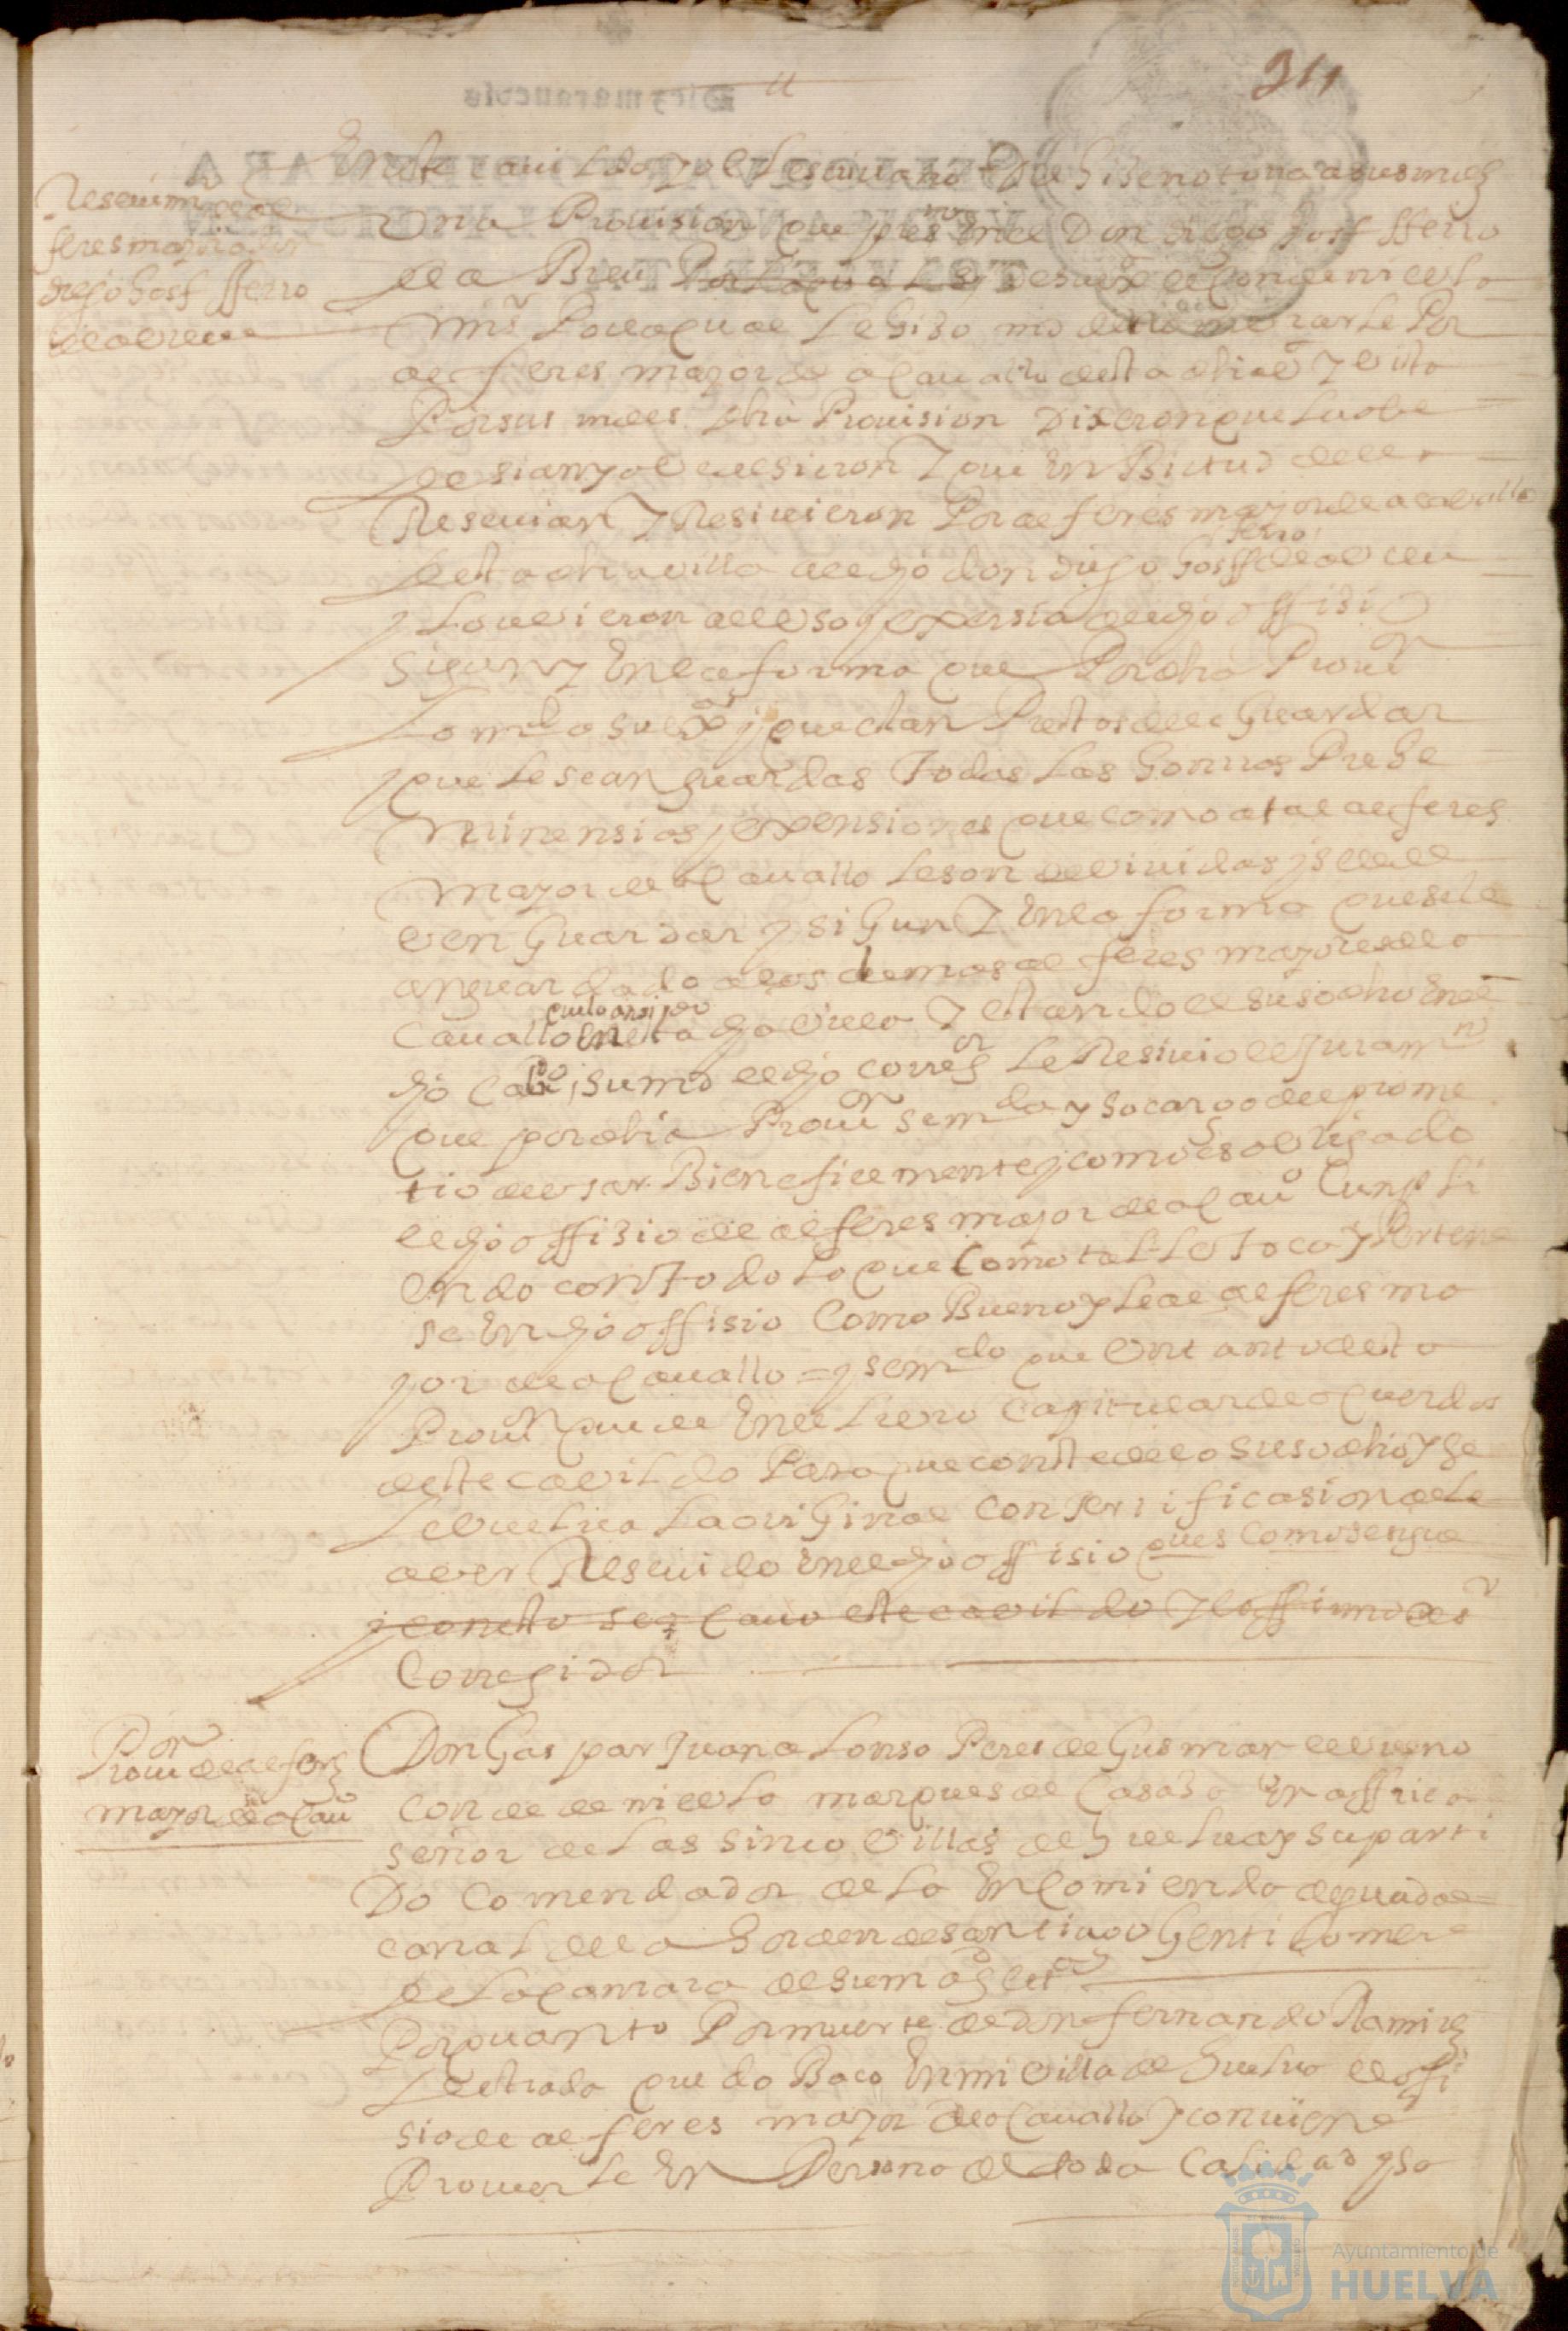 311
Reseuimº de al
feres mayor a don
diego Josf fferro
de abreu
En este cauildo yo el escriuano hise notoria a sus mds
Una Prouision que press.to en el Don diego Josf fferro
de la Breu Por la qual el exmo señor Conde
mi sr Por la qual le hiso md de nombrarle Por
alferes mayor de a Cauallo desta dha vª y vista
Por sus mdes dha Prouision Dixeron que la obe
desian y obedesieron y que En Birtud della
Reseuian y Resiuieron Por alferes mayor de a cauallo
desta dha villa al dho don diego Josff ferro de abreu
y lo uieron al uso y exersisio del dho offisio
sigun y En la forma que Por dha Prouon
lo mda su exa y que estan Prestos de le Guardar
y que le sean guardas todas las honrras Prehe
minensias y expensiones que como a tal alferes
mayor de a Cauallo le son deuidas y se le de
uen Guardar y sigun y En la forma que se le
an guardado a los demas alferes mayores de a
Cauallo que lo an sido En esta dha uilla y estando el susodho En el
dho Cabdo, su md del dho corregor le Resiuio el Juramto
que por dha Prouon se mda y so cargo del prome
tio de usar Bien e fielmente y como es obligado
el dho offisio de alferes mayor de a Cauo Cunpli
endo con todo lo que Como tal le toca y Pertene
se En dho offisio Como Bueno y leal alferes ma
yor de a Cauallo = y se mdo que un tanto desta
Prouon quede En el libro Capitular de aquerdos
deste cauildo Para que conste de lo susodho y se
le buelua la oriGinal con sertificasion de le
auer Reseuido En el dho offisio ques Como se sigue
y con esto se acauo este cauildo y lo firmo el sr
Corregidor
Prouon de alfers
mayor de a Cauo
Don Gaspar Juan alonso Peres de Gusman el bueno
Conde de niebla marques de Casasa En affrica
señor de las sinco Villas de huelua y su parti
Do Comendador de la Encomienda de guadal
canal de la horden de santiago Gentilomere
de la Camara de su magd etca
Por quanto Por muerte de don fernando Ramires
de estrada quedo Baco En mi villa de huelua el ofi
sio de alferes mayor de a Cauallo y conuiene
Prouerle En Persona de toda Calidad y sa
Ayuntamiento de
HUELVA